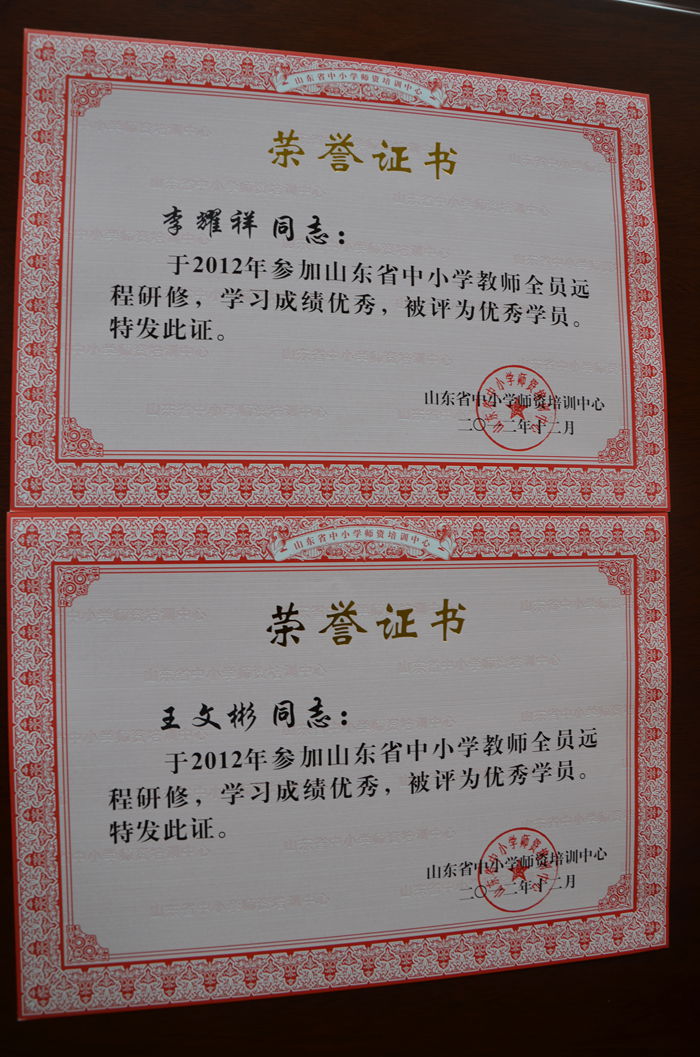 山东省中小学师资培训中心
荣誉证书
李耀祥 同志：
于2012年参加山东省中小学教师全员远
程研修，学习成绩优秀，被评为优秀学员。
特发此证。
山东省中小学师资培训中心
二〇一二年十二月
山东省中小学师资培训中心
荣誉证书
王文彬 同志：
于2012年参加山东省中小学教师全员远
程研修，学习成绩优秀，被评为优秀学员。
特发此证。
山东省中小学师资培训中心
二〇一二年十二月